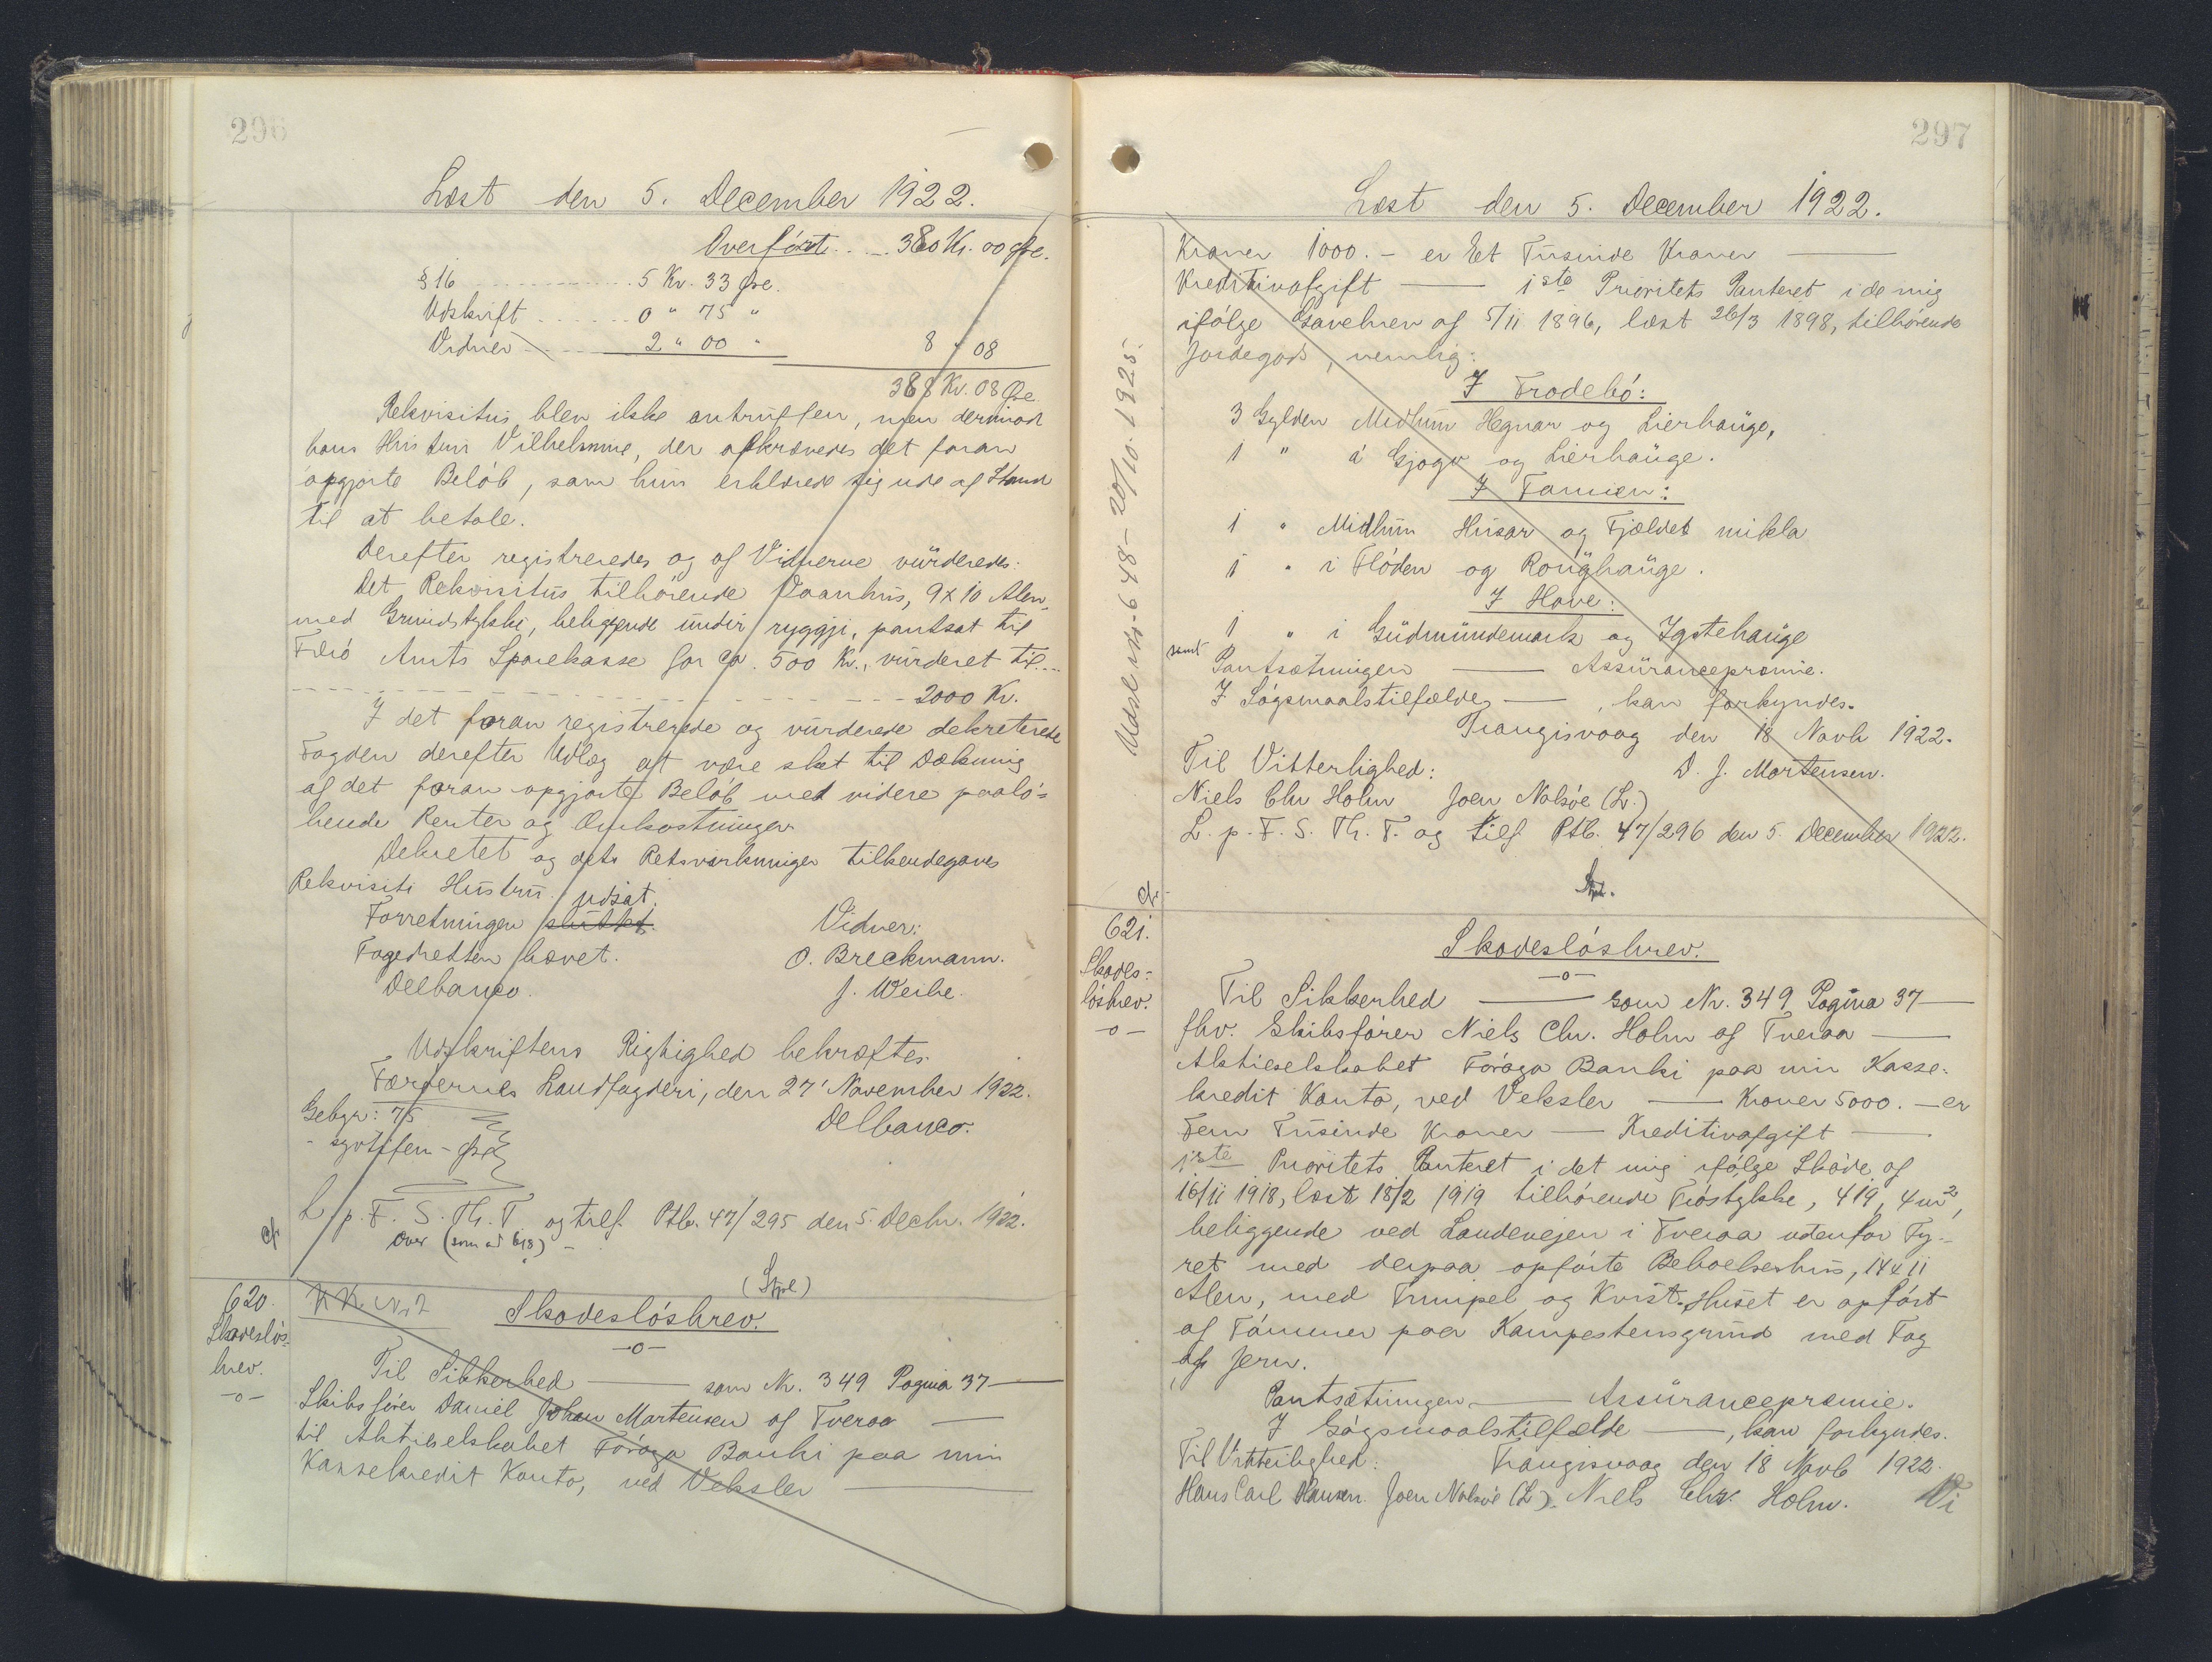 296
Læst den 5. December 1922.
Overført . . . . 380 Kr. 00 Øre.
§ 16 . . . . . . . 5 Kr. 33 Øre.
Udskrift . . . . . . 0 " 75 "
Vidner . . . . 2 " 00 " 8 " 08
388 Kr. 08 Øre
Rekvisitus blev ikke antruffen, men derimod
hans Hustru Vilhelmine, der afkrævedes det foran
opgjorte Beløb, som hun erklærede sig ude af Stand
til at betale.
Derefter registreredes og af Vidnerne vurderedes:
Det Rekvisitus tilhørende Vaanhus, 9 x 10 Alen,
med Grundstykke, beliggende undir ryggji, pantsat til
Færø Amts Sparekasse for ca. 500 Kr., vurderet til . . .
2000 Kr.
I det foran registrerede og vurderede dekreterede
Fogden derefter Udlæg at være sket til Dækning
af det foran opgjorte Beløb med videre paalø-
bende Renter og Omkostninger.
Dekretet og dets Retsvirkninger tilkendegaves
Rekvisiti Hustru.
udsat.
Forretningen sluttet. Vidner:
Fogedretten hævet. O. Breckmann.
Delbanco. J. Weihe.
Udskriftens Rigtighed bekræftes.
Færøernes Landfogderi, den 27' November 1922.
Gebyr: 75 Delbanco.
- syvtifem - Øre
L. p. F. S. Th. T. og tilf. Ptb. 47/295 den 5. Decbr. 1922.
cfr. over (som ad 618) -
(Spl.)
620. K K. No 2 Skadesløsbrev.
Skadesløs-
brev. -o-
-o- Til Sikkerhed — som Nr. 349 Pagina 37 —
Skibsfører Daniel Johan Mortensen af Tveraa —
til Aktieselskabet Føroya Banki paa min
Kassekredit Konto, ved Veksler —
297
Læst den 5. December 1922.
Kroner 1000. - er Et Tusinde Kroner —
Kreditivafgift — 1ste Prioritets Panteret i de mig
ifølge Gavebrev af 5/11 1896, læst 26/3 1898, tilhørende
Jordegods, nemlig:
I Trodebø:
3 Gylden Midlum Hegnar og Lierhauge,
1 " á Gjogv og Lierhauge.
I Famien:
1 " Midlum Husar og Fjældet mikla
1 " i Flóden og Roughauge.
I Hove:
1 " i Gudmundemark og Ygstehauge
samt
Pantsætningen — Assurancepræmie.
I Søgsmaalstilfælde — , kan forkyndes.
Trangisvaag den 18 Novb 1922.
Til Vitterlighed: D. J. Mortensen.
Niels Chr Holm Joen Nolsøe (L.)
L. p. F. S. Th. T. og tilf Ptb. 47/296 den 5. December 1922.
Udsl. No. 648 - 20/10. 1925.
cfr.
621. Skadesløsbrev.
Skades-
løsbrev. -o-
-o- Til Sikkerhed — som Nr. 349 Pagina 37 —
fhv. Skibsfører Niels Chr. Holm af Tveraa —
Aktieselskabet Føroya Banki paa min Kasse-
kredit Konto, ved Veksler — Kroner 5000. - er
Fem Tusinde Kroner — Kreditivafgift —
1ste Prioritets Panteret i det mig ifølge Skøde af
16/11 1918, læst 18/2 1919 tilhørende Trøstykke, 419,4 m²,
beliggende ved Landevejen i Tveraa udenfor Fy-
ret med derpaa opførte Beboelseshus, 14 x 11
Alen, med Trimpel og Kvist. Huset er opført
af Tømmer paa Kampestensgrund med Tag
af Jern.
Pantsætningen — Assurancepræmie.
I Søgsmaalstilfælde — , kan forkyndes.
Til Vitterlighed: Trangisvaag den 18 Novb 1922.
Hans Carl Hansen. Joen Nolsøe (L). Niels Chr. Holm. Vi